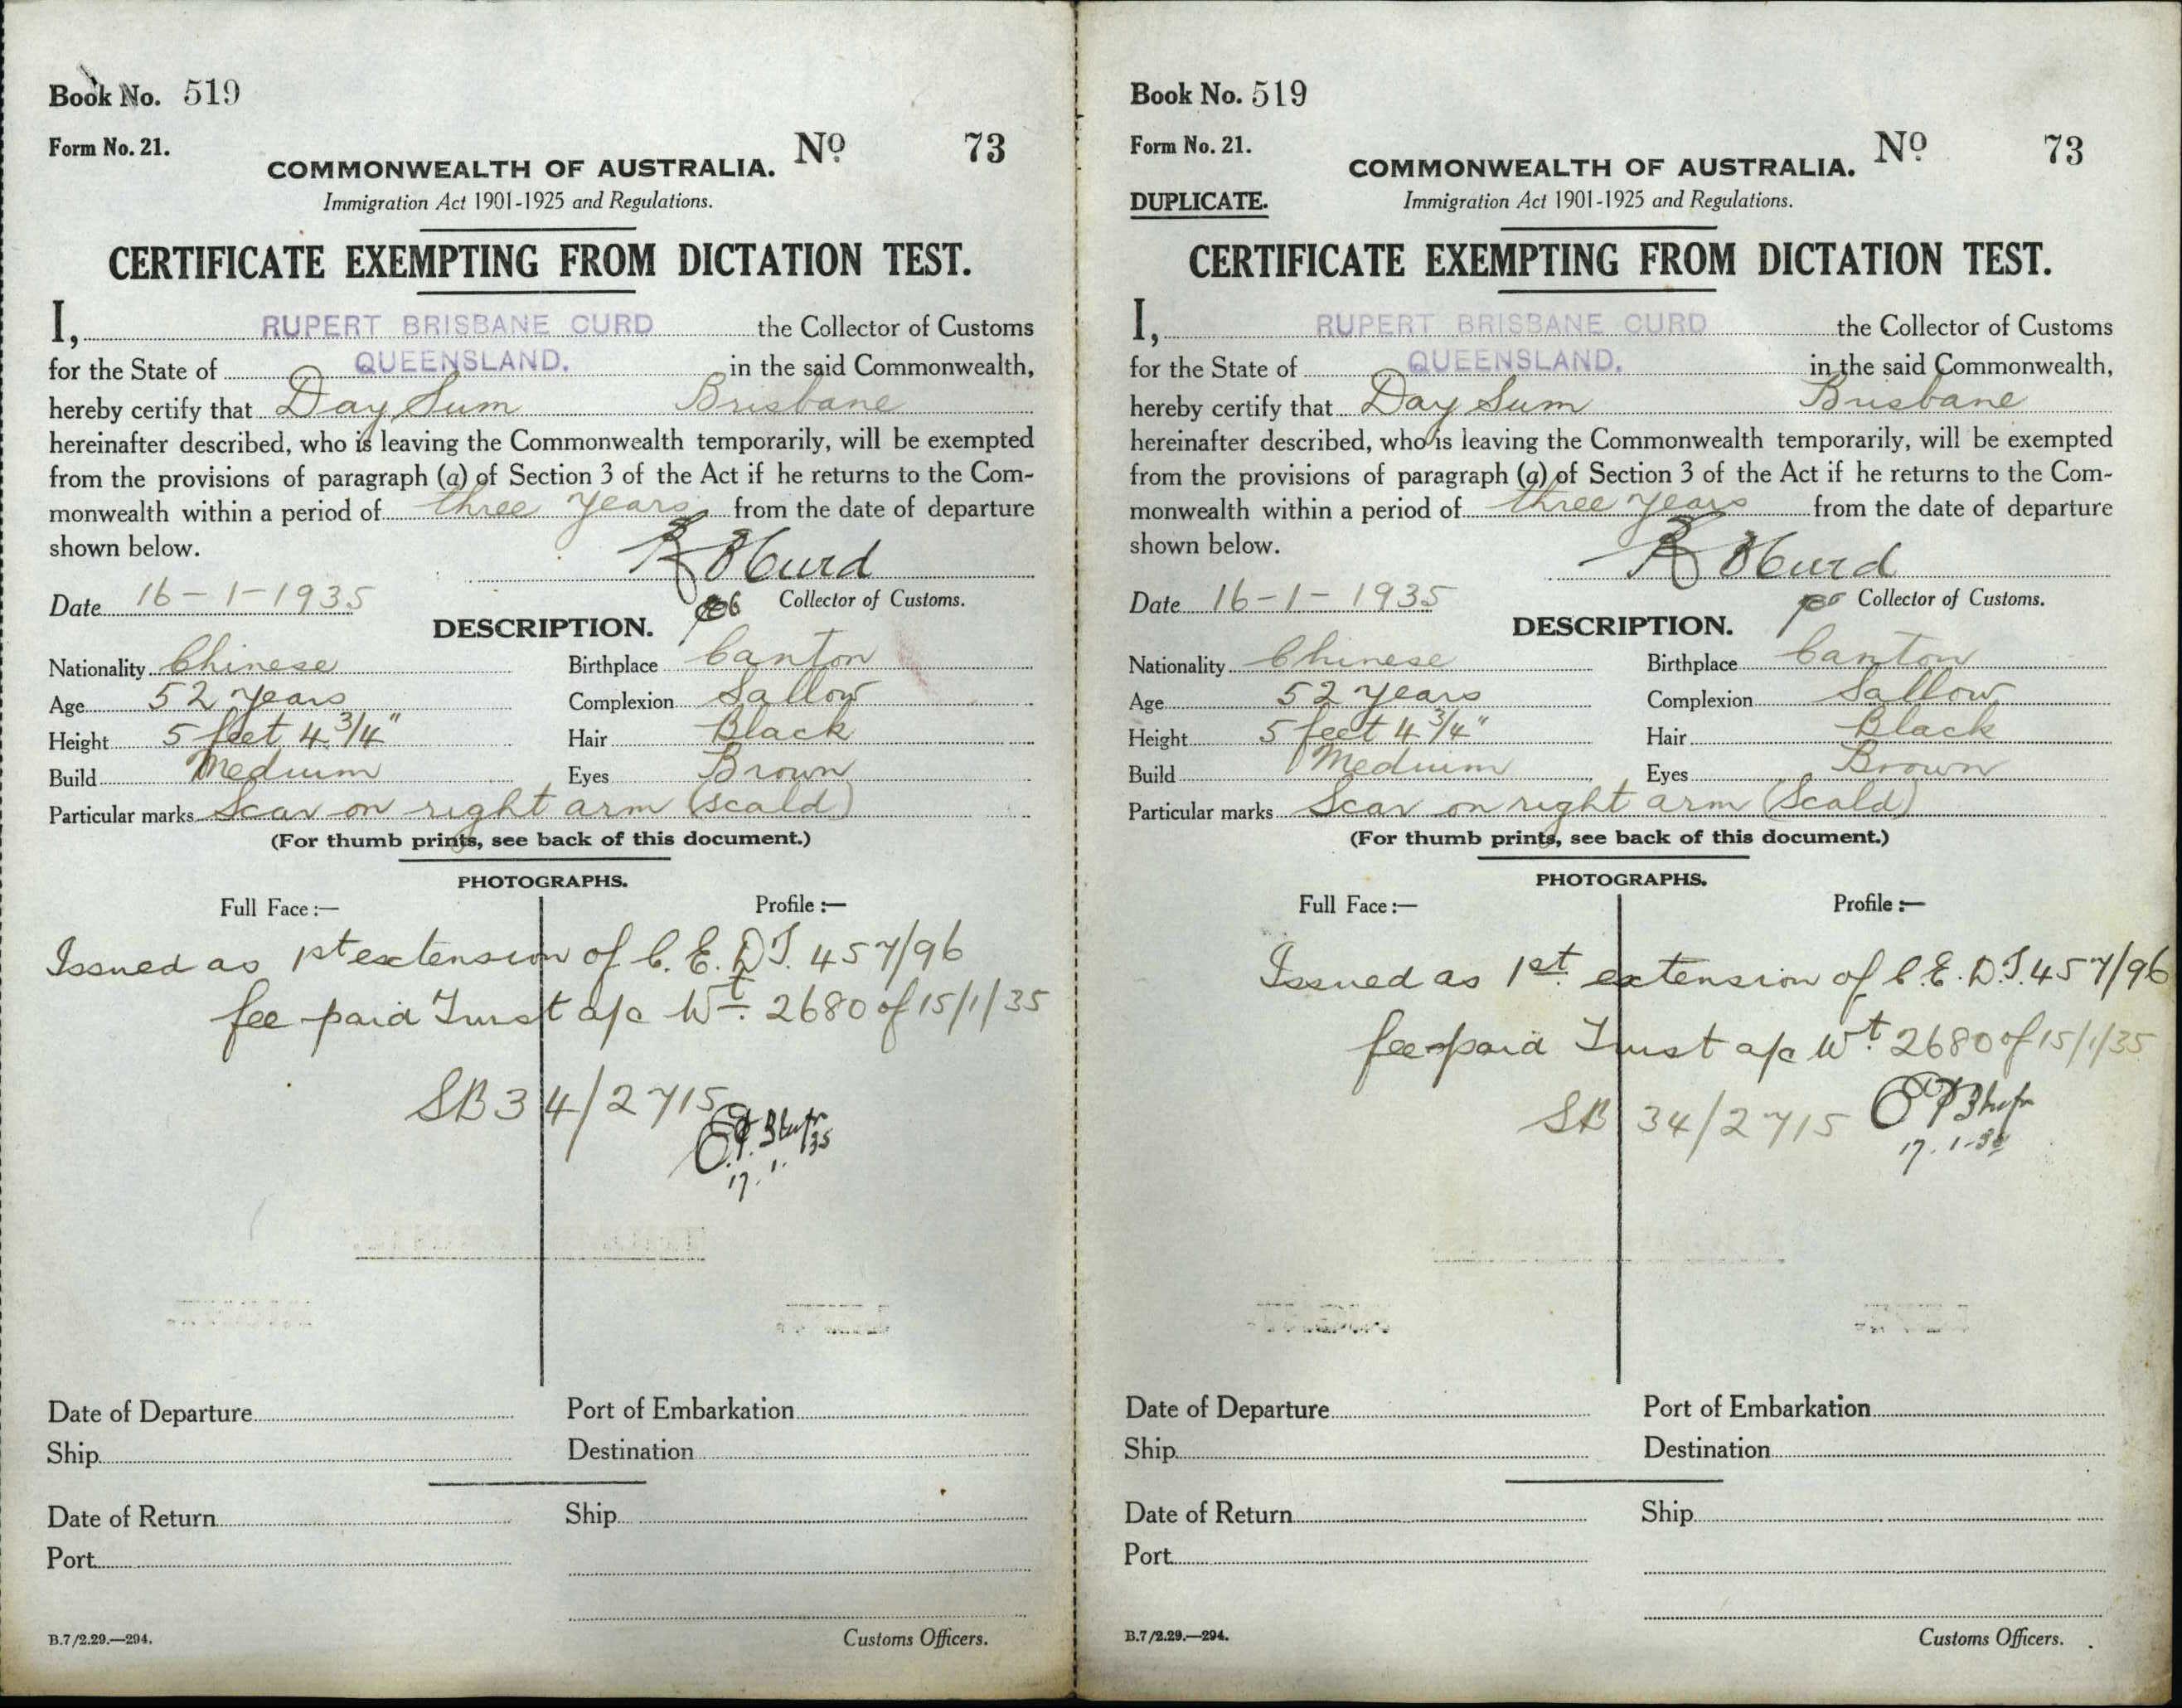 Book No. 519
Form No. 21.
COMMONWEALTH OF AUSTRALIA. No 73
Immigration Act 1901-1925 and Regulations.
CERTIFICATE EXEMPTING FROM DICTATION TEST.
I, RUPERT BRISBANE CURD the Collector of Customs
for the State of QUEENSLAND. in the said Commonwealth,
hereby certify that Day Sum Brisbane
hereinafter described, who is leaving the Commonwealth temporarily, will be exempted
from the provisions of paragraph (a) of Section 3 of the Act if he returns to the Com-
monwealth within a period of three years from the date of departure
shown below.
R B Curd
Date 16-1-1935 Collector of Customs.
DESCRIPTION.
Nationality Chinese Birthplace Canton
Age 52 years Complexion Sallow
Height 5 feet 4 3/4" Hair Black
Build Medium Eyes Brown
Particular marks Scar on right arm (scald)
(For thumb prints, see back of this document.)
PHOTOGRAPHS.
Full Face:— Profile:—
Issued as 1st extension of C.E.D.T. 457/96
fee paid Trust a/c Wt. 2680 of 15/1/35
SB34/2715
17.1.35
Date of Departure Port of Embarkation
Ship Destination
Date of Return Ship
Port
B.7/2.29.—294. Customs Officers.
Book No. 519
Form No. 21.
COMMONWEALTH OF AUSTRALIA. No 73
DUPLICATE. Immigration Act 1901-1925 and Regulations.
CERTIFICATE EXEMPTING FROM DICTATION TEST.
I, RUPERT BRISBANE CURD the Collector of Customs
for the State of QUEENSLAND. in the said Commonwealth,
hereby certify that Day Sum Brisbane
hereinafter described, who is leaving the Commonwealth temporarily, will be exempted
from the provisions of paragraph (a) of Section 3 of the Act if he returns to the Com-
monwealth within a period of three years from the date of departure
shown below.
R B Curd
Date 16-1-1935 Collector of Customs.
DESCRIPTION.
Nationality Chinese Birthplace Canton
Age 52 years Complexion Sallow
Height 5 feet 4 3/4" Hair Black
Build Medium Eyes Brown
Particular marks Scar on right arm (Scald)
(For thumb prints, see back of this document.)
PHOTOGRAPHS.
Full Face:— Profile:—
Issued as 1st extension of C.E.D.T. 457/96
fee paid Trust a/c Wt. 2680 of 15/1/35
SB 34/2715
17.1.35
Date of Departure Port of Embarkation
Ship Destination
Date of Return Ship
Port
B.7/2.29.—294. Customs Officers.